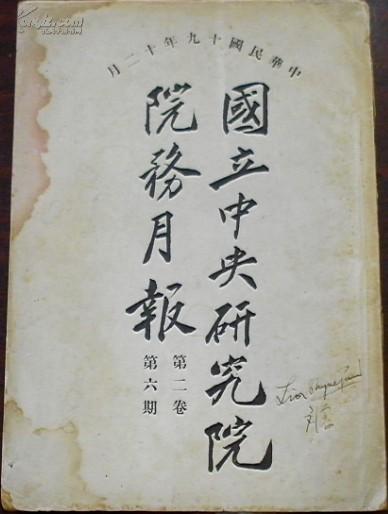 中華民國十九年十二月
國立中央研究院
院務月報
第二卷
第六期